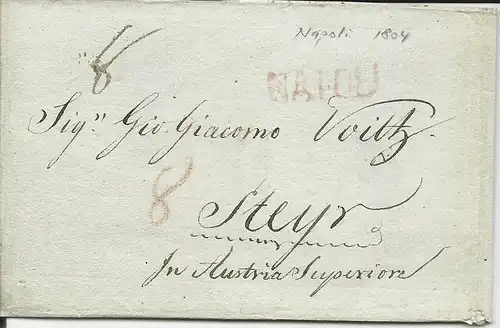 Napoli 1804
8
NAPOLI
Sig.ⁿ Gio. Giacomo Voiltz.
8
Steyr
In Austria Superiore